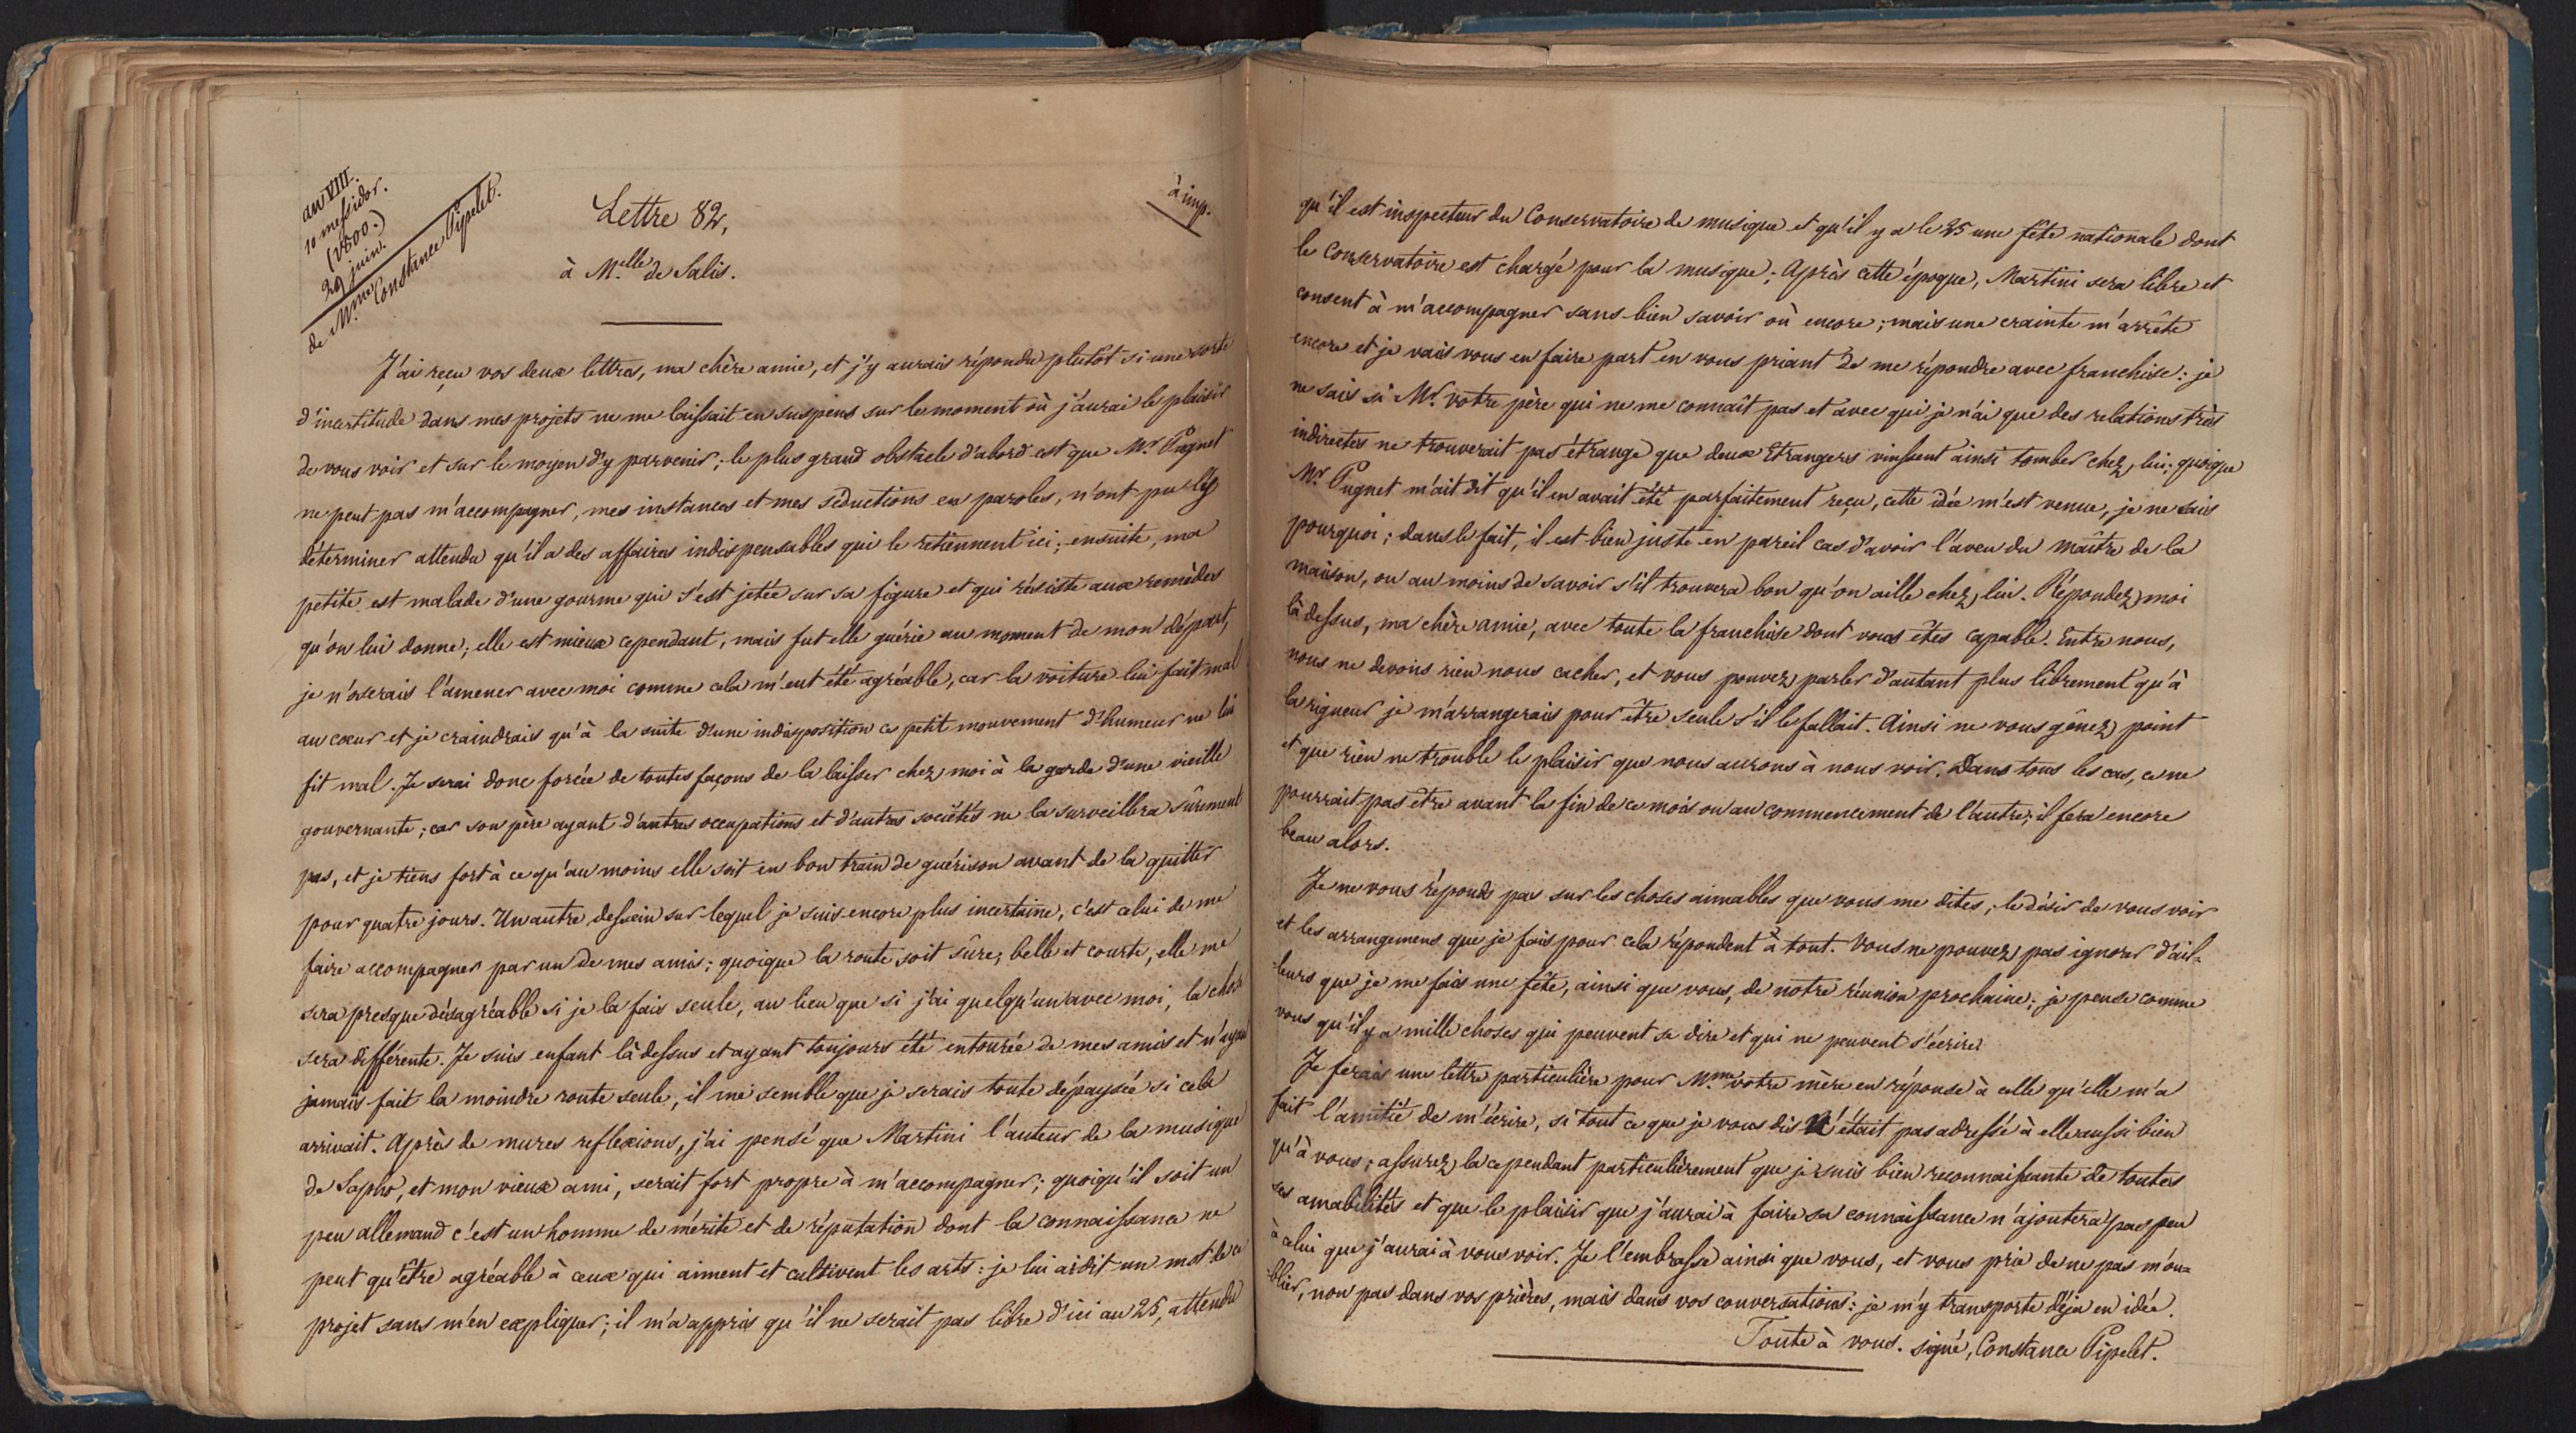 an VIII.
10 messidor.
(1800.)
29 juin.
de Mme Constance Pipelet.
Lettre 82,
à imp.
à Melle de Salis.
J'ai reçu vos deux lettres, ma chère amie, et j'y aurais répondu plutôt si une sorte
d'incertitude dans mes projets ne me laissait en suspens sur le moment où j'aurai le plaisir
de vous voir et sur le moyen d'y parvenir; le plus grand obstacle d'abord est que Mr Pugnet
ne peut pas m'accompagner, mes instances et mes séductions en paroles, n'ont pu le
déterminer attendu qu'il a des affaires indispensables qui le retiennent ici; ensuite, ma
petite est malade d'une gourme qui s'est jetée sur sa figure et qui résiste aux remèdes
qu'on lui donne; elle est mieux cependant, mais fut elle guérie au moment de mon départ,
je n'oserais l'amener avec moi comme cela m'eut été agréable, car la voiture lui fait mal
au cœur et je craindrais qu'à la suite d'une indisposition ce petit mouvement d'humeur ne lui
fit mal. Je serai donc forcée de toutes façons de la laisser chez moi à la garde d'une vieille
gouvernante; car son père ayant d'autres occupations et d'autres sociétés ne la surveillera sûrement
pas, et je tiens fort à ce qu'au moins elle soit en bon train de guérison avant de la quitter
pour quatre jours. Un autre dessein sur lequel je suis encore plus incertaine, c'est celui de me
faire accompagner par un de mes amis; quoique la route soit sûre, belle et courte, elle me
sera presque désagréable si je la fais seule, au lieu que si j'ai quelqu'un avec moi, la chose
sera différente. Je suis enfant là dessus et ayant toujours été entourée de mes amis et n'ayant
jamais fait la moindre route seule, il me semble que je serais toute dépaysée si cela
arrivait. Après de mures reflexions, j'ai pensé que Martini l'auteur de la musique
de Sapho, et mon vieux ami, serait fort propre à m'accompagner; quoiqu'il soit un
peu allemand c'est un homme de mérite et de réputation dont la connaissance ne
peut qu'être agréable à ceux qui aiment et cultivent les arts: je lui ai dit un mot de ce
projet sans m'en expliquer; il m'a appris qu'il ne serait pas libre d'ici au 25, attendu
qu'il est inspecteur du Conservatoire de musique et qu'il y a le 25 une fête nationale dont
le Conservatoire est chargé pour la musique; Après cette époque, Martini sera libre et
consent à m'accompagner sans bien savoir où encore; mais une crainte m'arrête
encore et je vais vous en faire part en vous priant de me répondre avec franchise: je
ne sais si Mr. votre père qui ne me connaît pas et avec qui je n'ai que des relations très
indirectes ne trouverait pas étrange que deux Etrangers vinssent ainsi tomber chez lui; quoique
Mr Pugnet m'ait dit qu'il en avait été parfaitement reçu, cette idée m'est venue, je ne sais
pourquoi; dans le fait, il est bien juste en pareil cas d'avoir l'aveu du maître de la
maison, ou au moins de savoir s'il trouvera bon qu'on aille chez lui. Répondez moi
là dessus, ma chère amie, avec toute la franchise dont vous êtes capable. Entre nous,
nous ne devons rien nous cacher, et vous pouvez parler d'autant plus librement qu'à
la rigueur je m'arrangerais pour être seule s'il le fallait. Ainsi ne vous gênez point
et que rien ne trouble le plaisir que nous aurons à nous voir. Dans tous les cas, ce ne
pourrait pas être avant la fin de ce mois ou au commencement de l'autre; il fera encore
beau alors.
Je ne vous réponds pas sur les choses aimables que vous me dites; le désir de vous voir
et les arrangemens que je fais pour cela répondent à tout. Vous ne pouvez pas ignorer d'ail=
leurs que je me fais une fête, ainsi que vous, de notre réunion prochaine; je pense comme
vous qu'il y a mille choses qui peuvent se dire et qui ne peuvent s'écrire.
Je ferais une lettre particulière pour Mme votre mère en réponse à celle qu'elle m'a
fait l'amitié de m'écrire, si tout ce que je vous dis n'était pas adressé à elle aussi bien
qu'à vous; assurez la cependant particulièrement que je suis bien reconnaissante de toutes
ses amabilités et que le plaisir que j'aurai à faire sa connaissance n'ajoutera pas peu
à celui que j'aurai à vous voir. Je l'embrasse ainsi que vous, et vous prie de ne pas m'ou=
blier, non pas dans vos prières, mais dans vos conversations: je m'y transporte déja en idée.
Toute à vous. signé, Constance Pipelet.